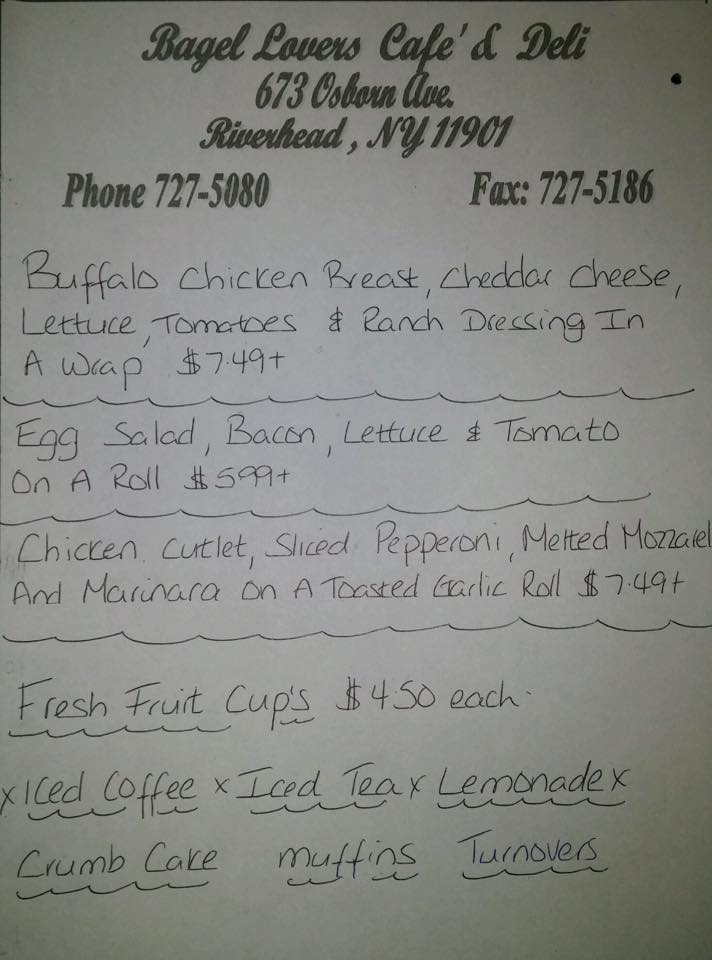 Bagel Lovers Cafe' & Deli
673 Osborn Ave.
Riverhead, NY 11901
Phone 727-5080 Fax: 727-5186
Buffalo Chicken Breast, Cheddar Cheese,
Lettuce, Tomatoes & Ranch Dressing In
A Wrap $7.49+
Egg Salad, Bacon, Lettuce & Tomato
On A Roll $5.99+
Chicken Cutlet, Sliced Pepperoni, Melted Mozzarel
And Marinara On A Toasted Garlic Roll $7.49+
Fresh Fruit Cup's $4.50 each.
x Iced Coffee x Iced Tea x Lemonade x
Crumb Cake muffins Turnovers